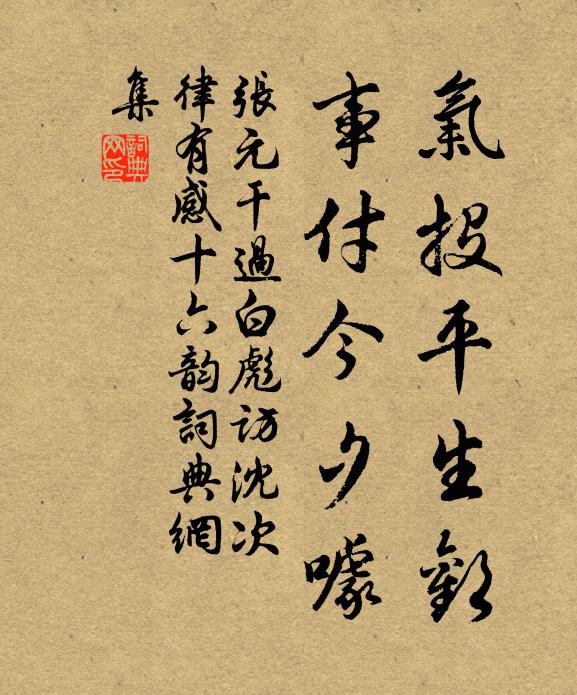 氣投平生歡
事付今夕噱
張元干過白彪訪沈次
律有感十六韵詞典網
集
詞典網印